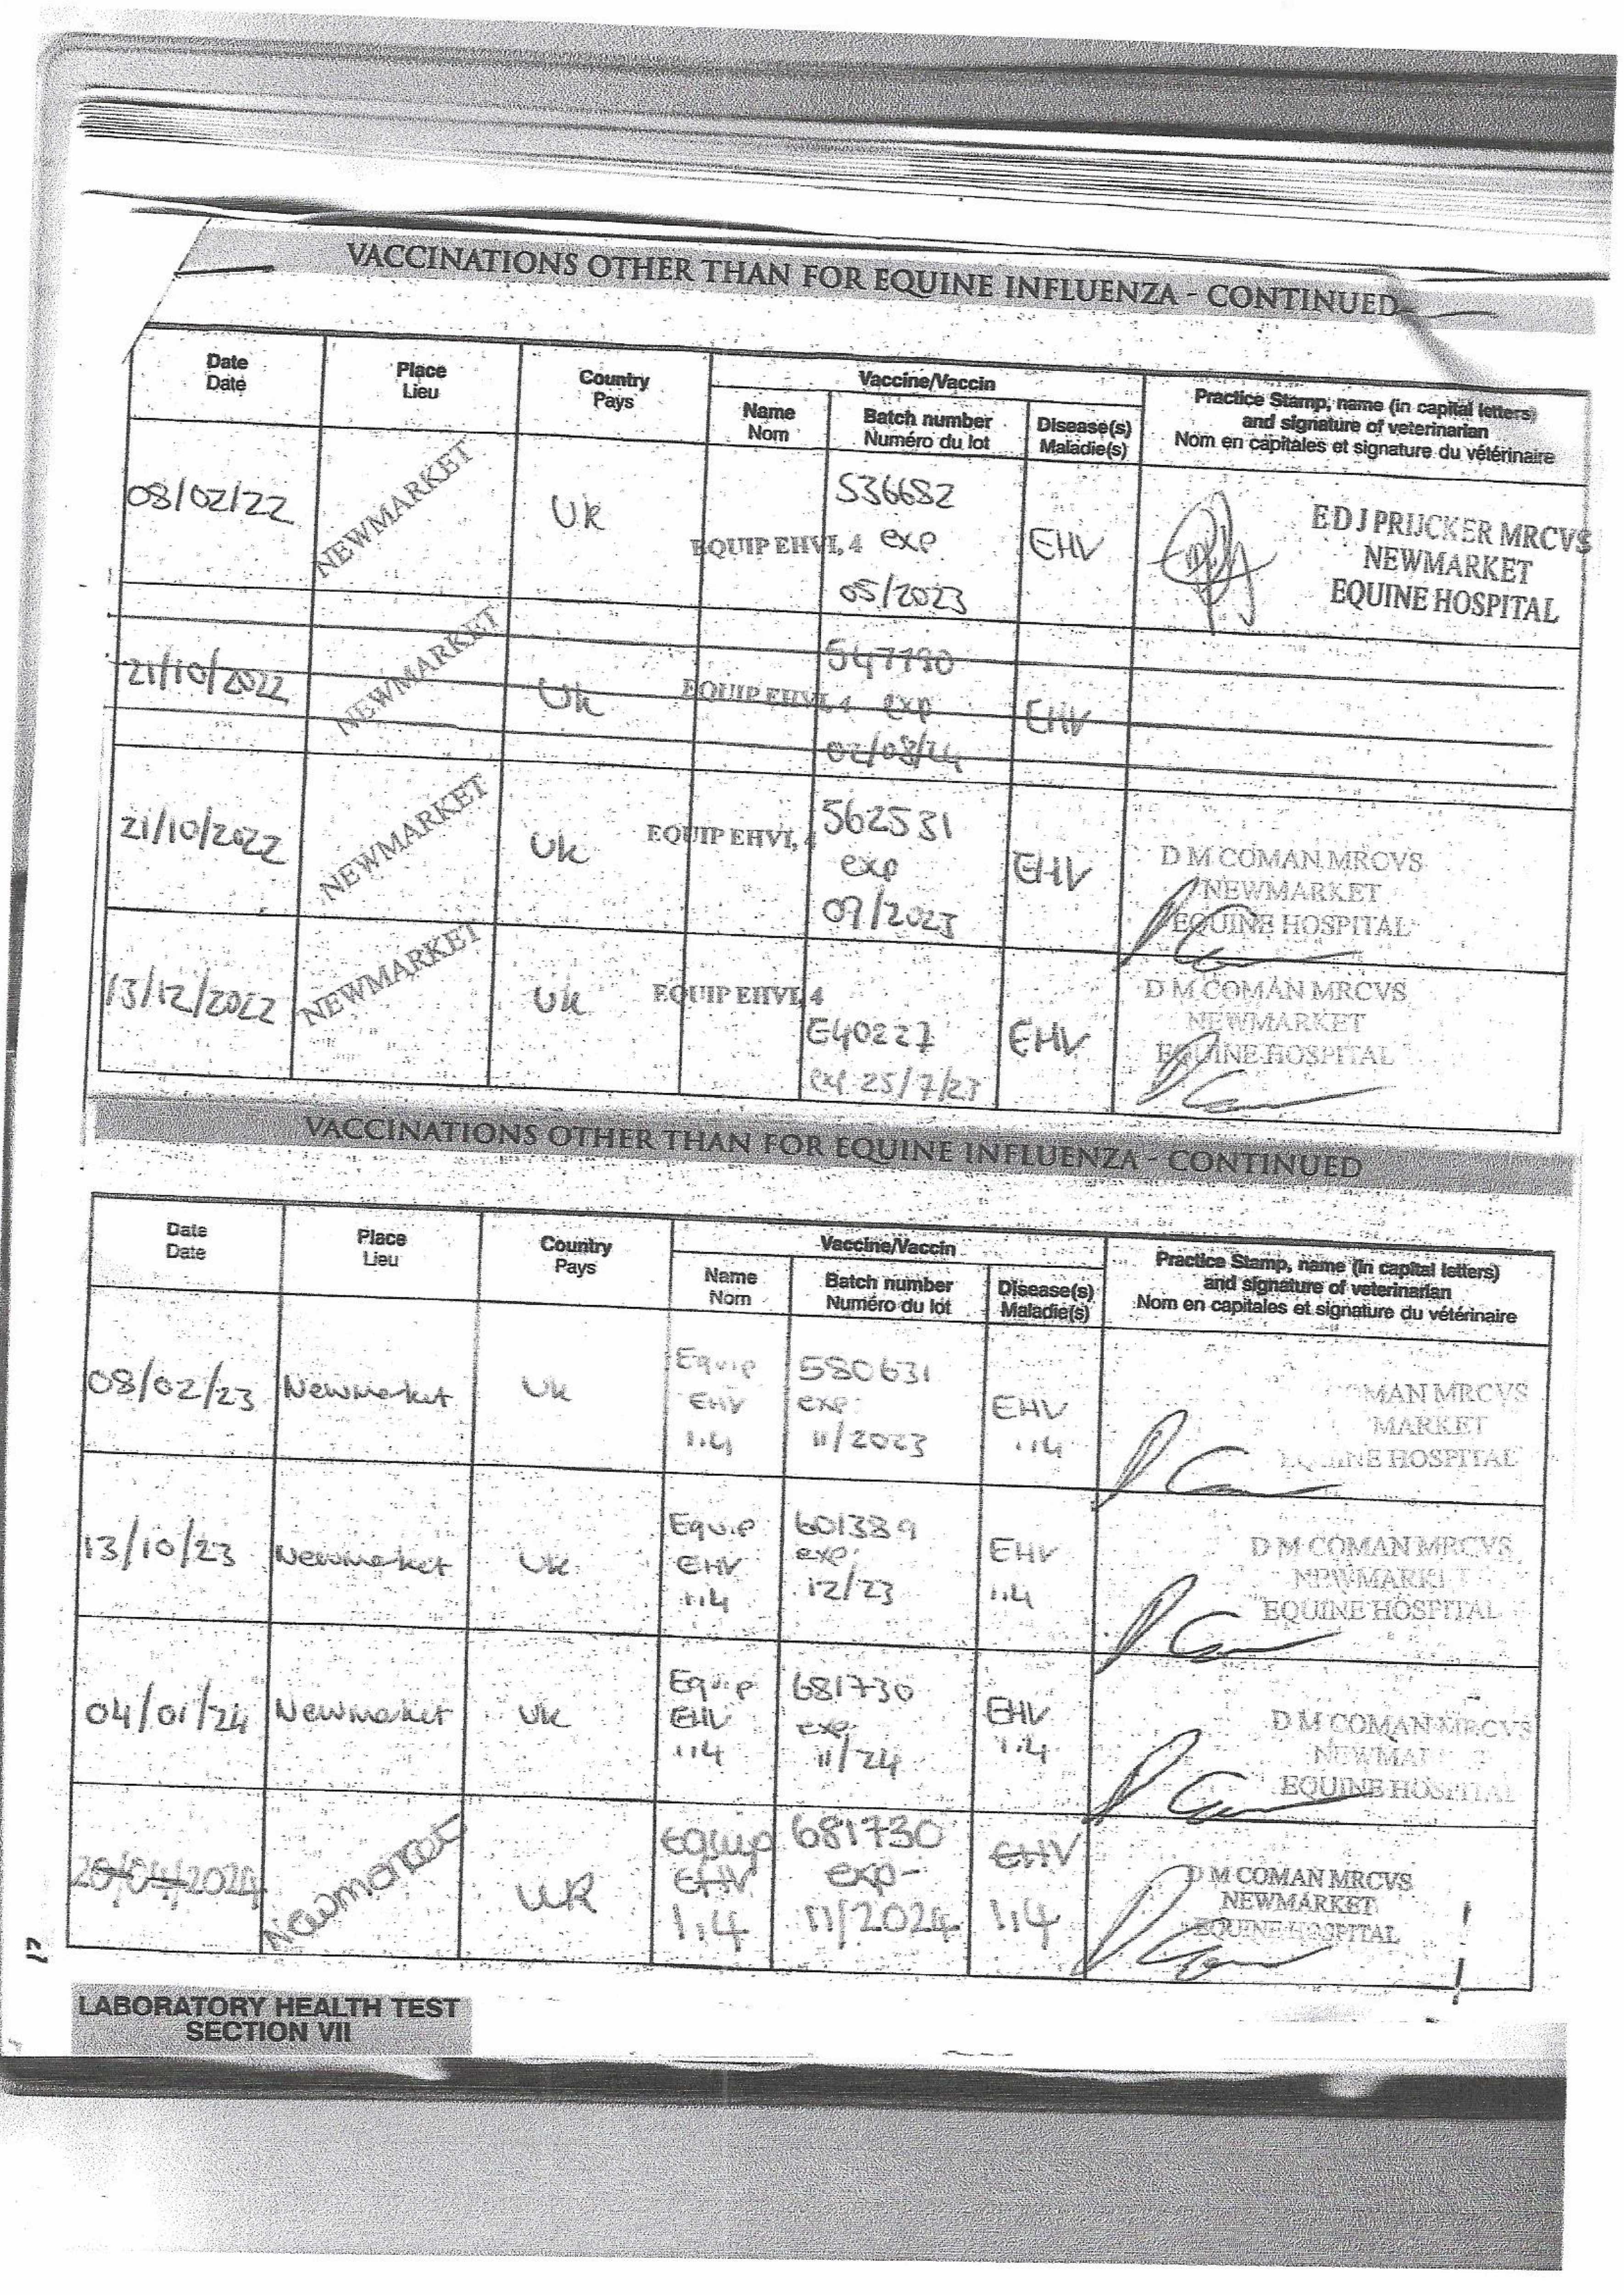 VACCINATIONS OTHER THAN FOR EQUINE INFLUENZA - CONTINUED
Date
Date
Place
Lieu
Country
Pays
Vaccine/Vaccin
Name
Nom
Batch number
Numéro du lot
Disease(s)
Maladie(s)
Practice Stamp, name (in capital letters)
and signature of veterinarian
Nom en capitales et signature du vétérinaire
08/02/22
NEWMARKET
UK
EQUIP EHV1,4
536682
exp
05/2023
EHV
E D J PRIJCKER MRCVS
NEWMARKET
EQUINE HOSPITAL
21/10/2022
NEWMARKET
Uk
EQUIP EHV1,4
547790
exp
EHV
21/10/2022
NEWMARKET
Uk
EQUIP EHV1,4
562531
exp
07/2023
EHV
D M COMAN MRCVS
NEWMARKET
EQUINE HOSPITAL
13/12/2022
NEWMARKET
Uk
EQUIP EHV1,4
E40227
exp 25/7/23
EHV
D M COMAN MRCVS
NEWMARKET
EQUINE HOSPITAL
VACCINATIONS OTHER THAN FOR EQUINE INFLUENZA - CONTINUED
Date
Date
Place
Lieu
Country
Pays
Vaccine/Vaccin
Name
Nom
Batch number
Numéro du lot
Disease(s)
Maladie(s)
Practice Stamp, name (in capital letters)
and signature of veterinarian
Nom en capitales et signature du vétérinaire
08/02/23
Newmarket
Uk
Equip
EHV
1.4
580631
exp.
11/2023
EHV
1.4
OMAN MRCVS
MARKET
EQUINE HOSPITAL
13/10/23
Newmarket
Uk
Equip
EHV
1.4
601389
exp.
12/23
EHV
1.4
D M COMAN MRCVS
NEWMARKET
EQUINE HOSPITAL
04/01/24
Newmarket
Uk
Equip
EHV
1.4
681730
exp.
11/24
EHV
1.4
D M COMAN MRCVS
NEWMAR
EQUINE HOSPITAL
20/04/2024
Newmarket
UK
Equip
EHV
1.4
681730
exp-
11/2024
EHV
1.4
D M COMAN MRCVS
NEWMARKET
EQUINE HOSPITAL
17
LABORATORY HEALTH TEST
SECTION VII